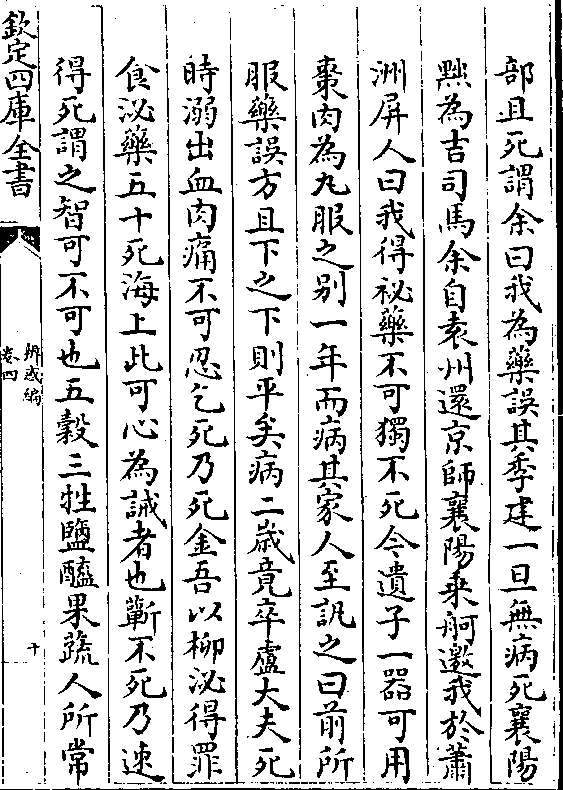 部且死謂余曰我為藥誤其季建一旦無病死襄陽
黜為吉司馬余自袁州還京師襄陽乗舸邀我於蕭
洲屏人曰我得祕藥不可獨不死今遺子一器可用
棗肉為丸服之别一年而病其家人至訊之曰前所
服藥誤方且下之下則平矣病二歳竟卒盧大夫死
時溺出血肉痛不可忍乞死乃死金吾以柳泌得罪
食泌藥五十死海上此可心為誡者也蘄不死乃速
得死謂之智可不可也五穀三牲鹽醯果蔬人所常
欽定四庫全書
辨惑編
卷四
十